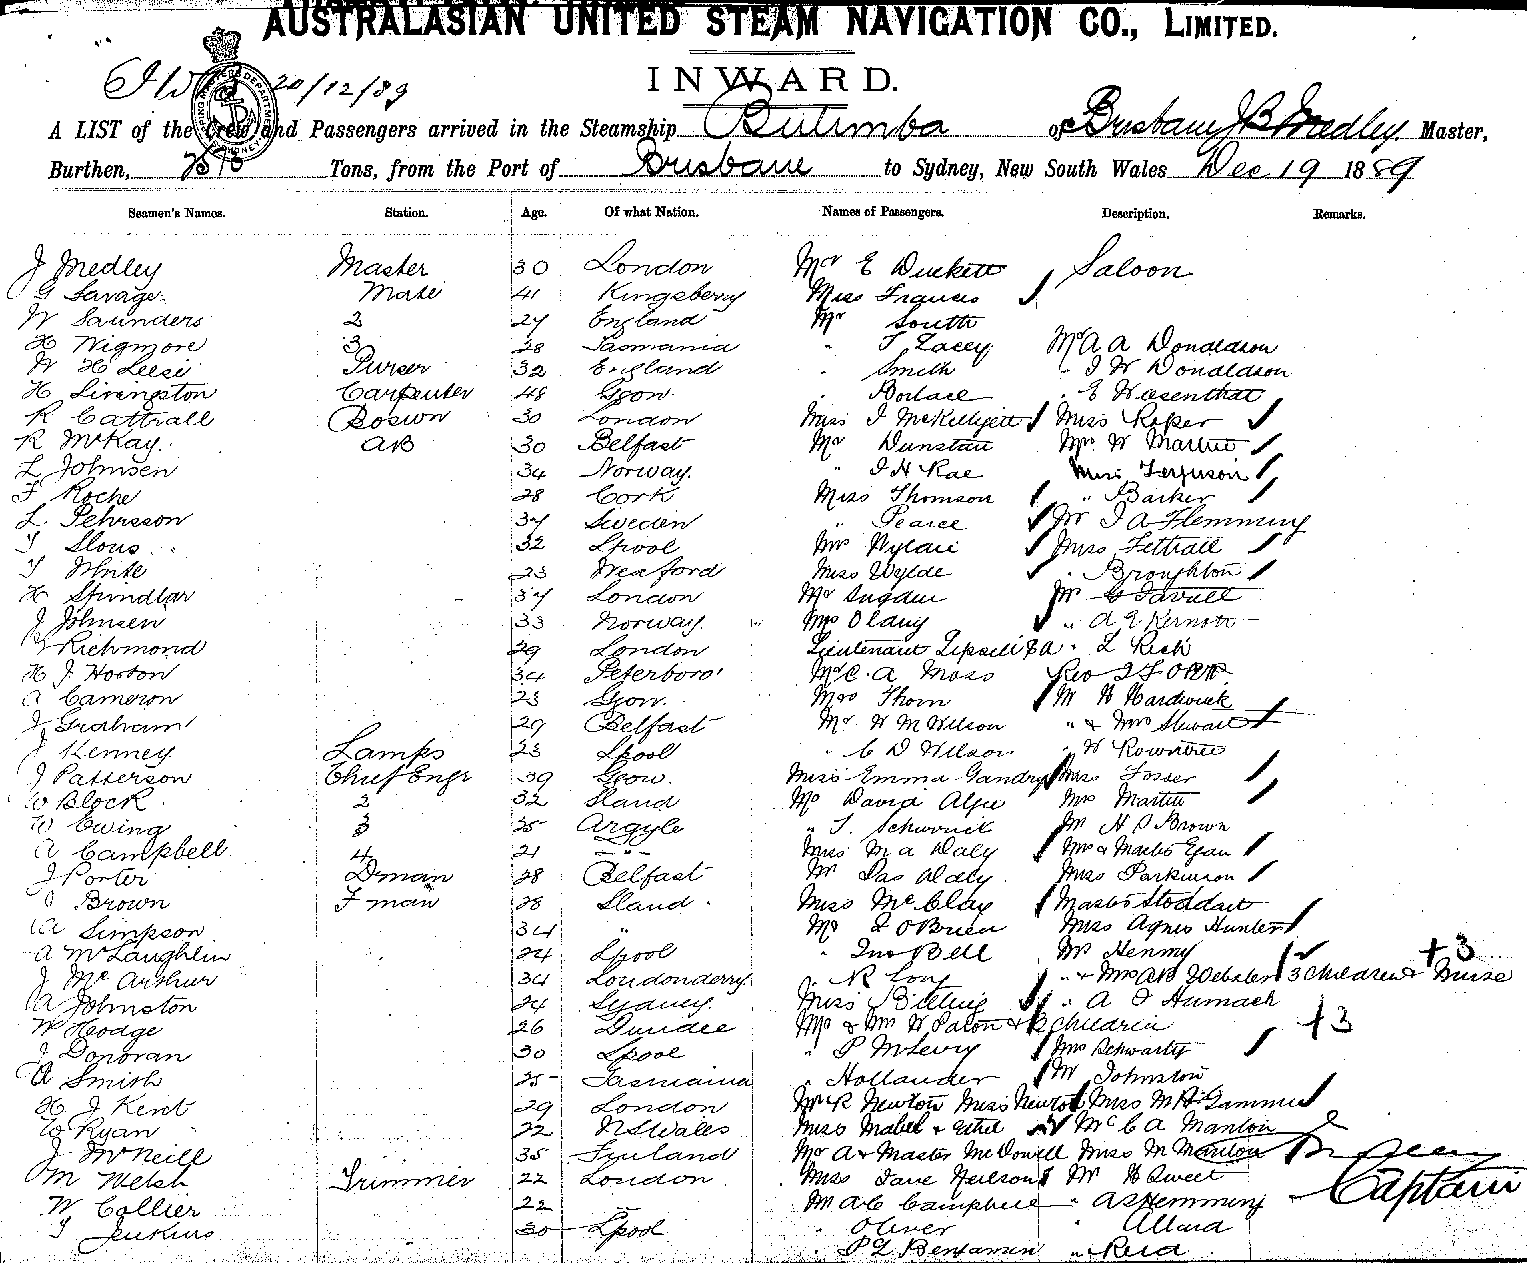 AUSTRALASIAN UNITED STEAM NAVIGATION CO., LIMITED.
INWARD.
20/12/89
A LIST of the Crew and Passengers arrived in the Steamship Bulimba of Brisbane J B Medley Master,
Burthen, Tons, from the Port of Brisbane to Sydney, New South Wales Dec 19 1889
Seamen's Names. Station. Age. Of what Nation. Names of Passengers. Description. Remarks.
J Medley Master 30 London Mr E Duckett Saloon
G Savage Mate 41 Kingsberry Miss Francis
W Saunders 2 27 England Mr South
H Wigmore 3 28 Tasmania " T Lacey Mr A A Donaldson
W H Leesi Purser 32 England " Smith " J W Donaldson
H Livingston Carpenter 48 Ggow " " E Wasenthal
R Cattrall Bosun 30 London Miss J Miss Roper
R McKay. AB 30 Belfast Mr Dunstan Mrs W Martin
L Johnsen 34 Norway. " J H Rae Miss Ferguson
F Roche 28 Cork Miss Thomson " Barker
L. Pehrsson 37 Sweden " Pearce Mr J A Flemming
T Slous 32 Lpool Mrs Miss
T White 23 Wexford Miss Wylde " Broughton
H Spindlar 37 London Mr Sugden Mr G
J Johnsen 33 Norway. Mrs " A E Kernot
Richmond 29 London Lieutenant RA " L Rich
H J Horton 34 Peterboro' Mr C. A Moss Rev
A Cameron 23 Ggow. Mrs Thom Mr H Hardwick
J Graham 29 Belfast Mr W M Wilson " & Mrs Stewart
J Kenney Lamps 23 Lpool " C D Wilson " W Rowntree
J Patterson Chief Engr 39 Ggow. Miss Emma Gandry Miss
W Block 2 32 Sland Mr David Mrs Martin
W Ewing 3 25 Argyle " T. Mr H P Brown
A Campbell 4 21 " Miss M A Daly Mrs & Master Egan
J Porter Dman 28 Belfast Mr Jas Daly Miss Parkinson
Brown F man 28 Sland Miss McClay Master Stoddart
A Simpson 34 " Mr O'Brien Miss Agnes Hunter
A McLaughlin 24 Lpool " Jno Bell Mr +3
J McArthur 34 Londonderry " R Long " & Mrs Webster 3 children & Nurse
A Johnston 24 Sydney. Miss " A
W Hodge 26 Dundee Mr & Mrs W Paton & 2 children +3
J Donovan 30 Lpool " P McLevy Mrs Schwartz
A Smith 25 Tasmania " Hollander Mr Johnston
H J Kent 29 London Mr R Newton Miss Newton Miss M
Ryan 22 NSWales Miss Mabel & Ethel Mr C A Manton
J McNeill 35 Finland Mr A & Master McDowell Miss M Manton
M Welsh Trimmer 22 London Miss Jane Neilson Mr H Sweet
W Collier 22 " Mr A C Campbell " A S Hemming Captain
T Jenkins 30 Lpool " Oliver " Allard
" P L Benjamin " Reid